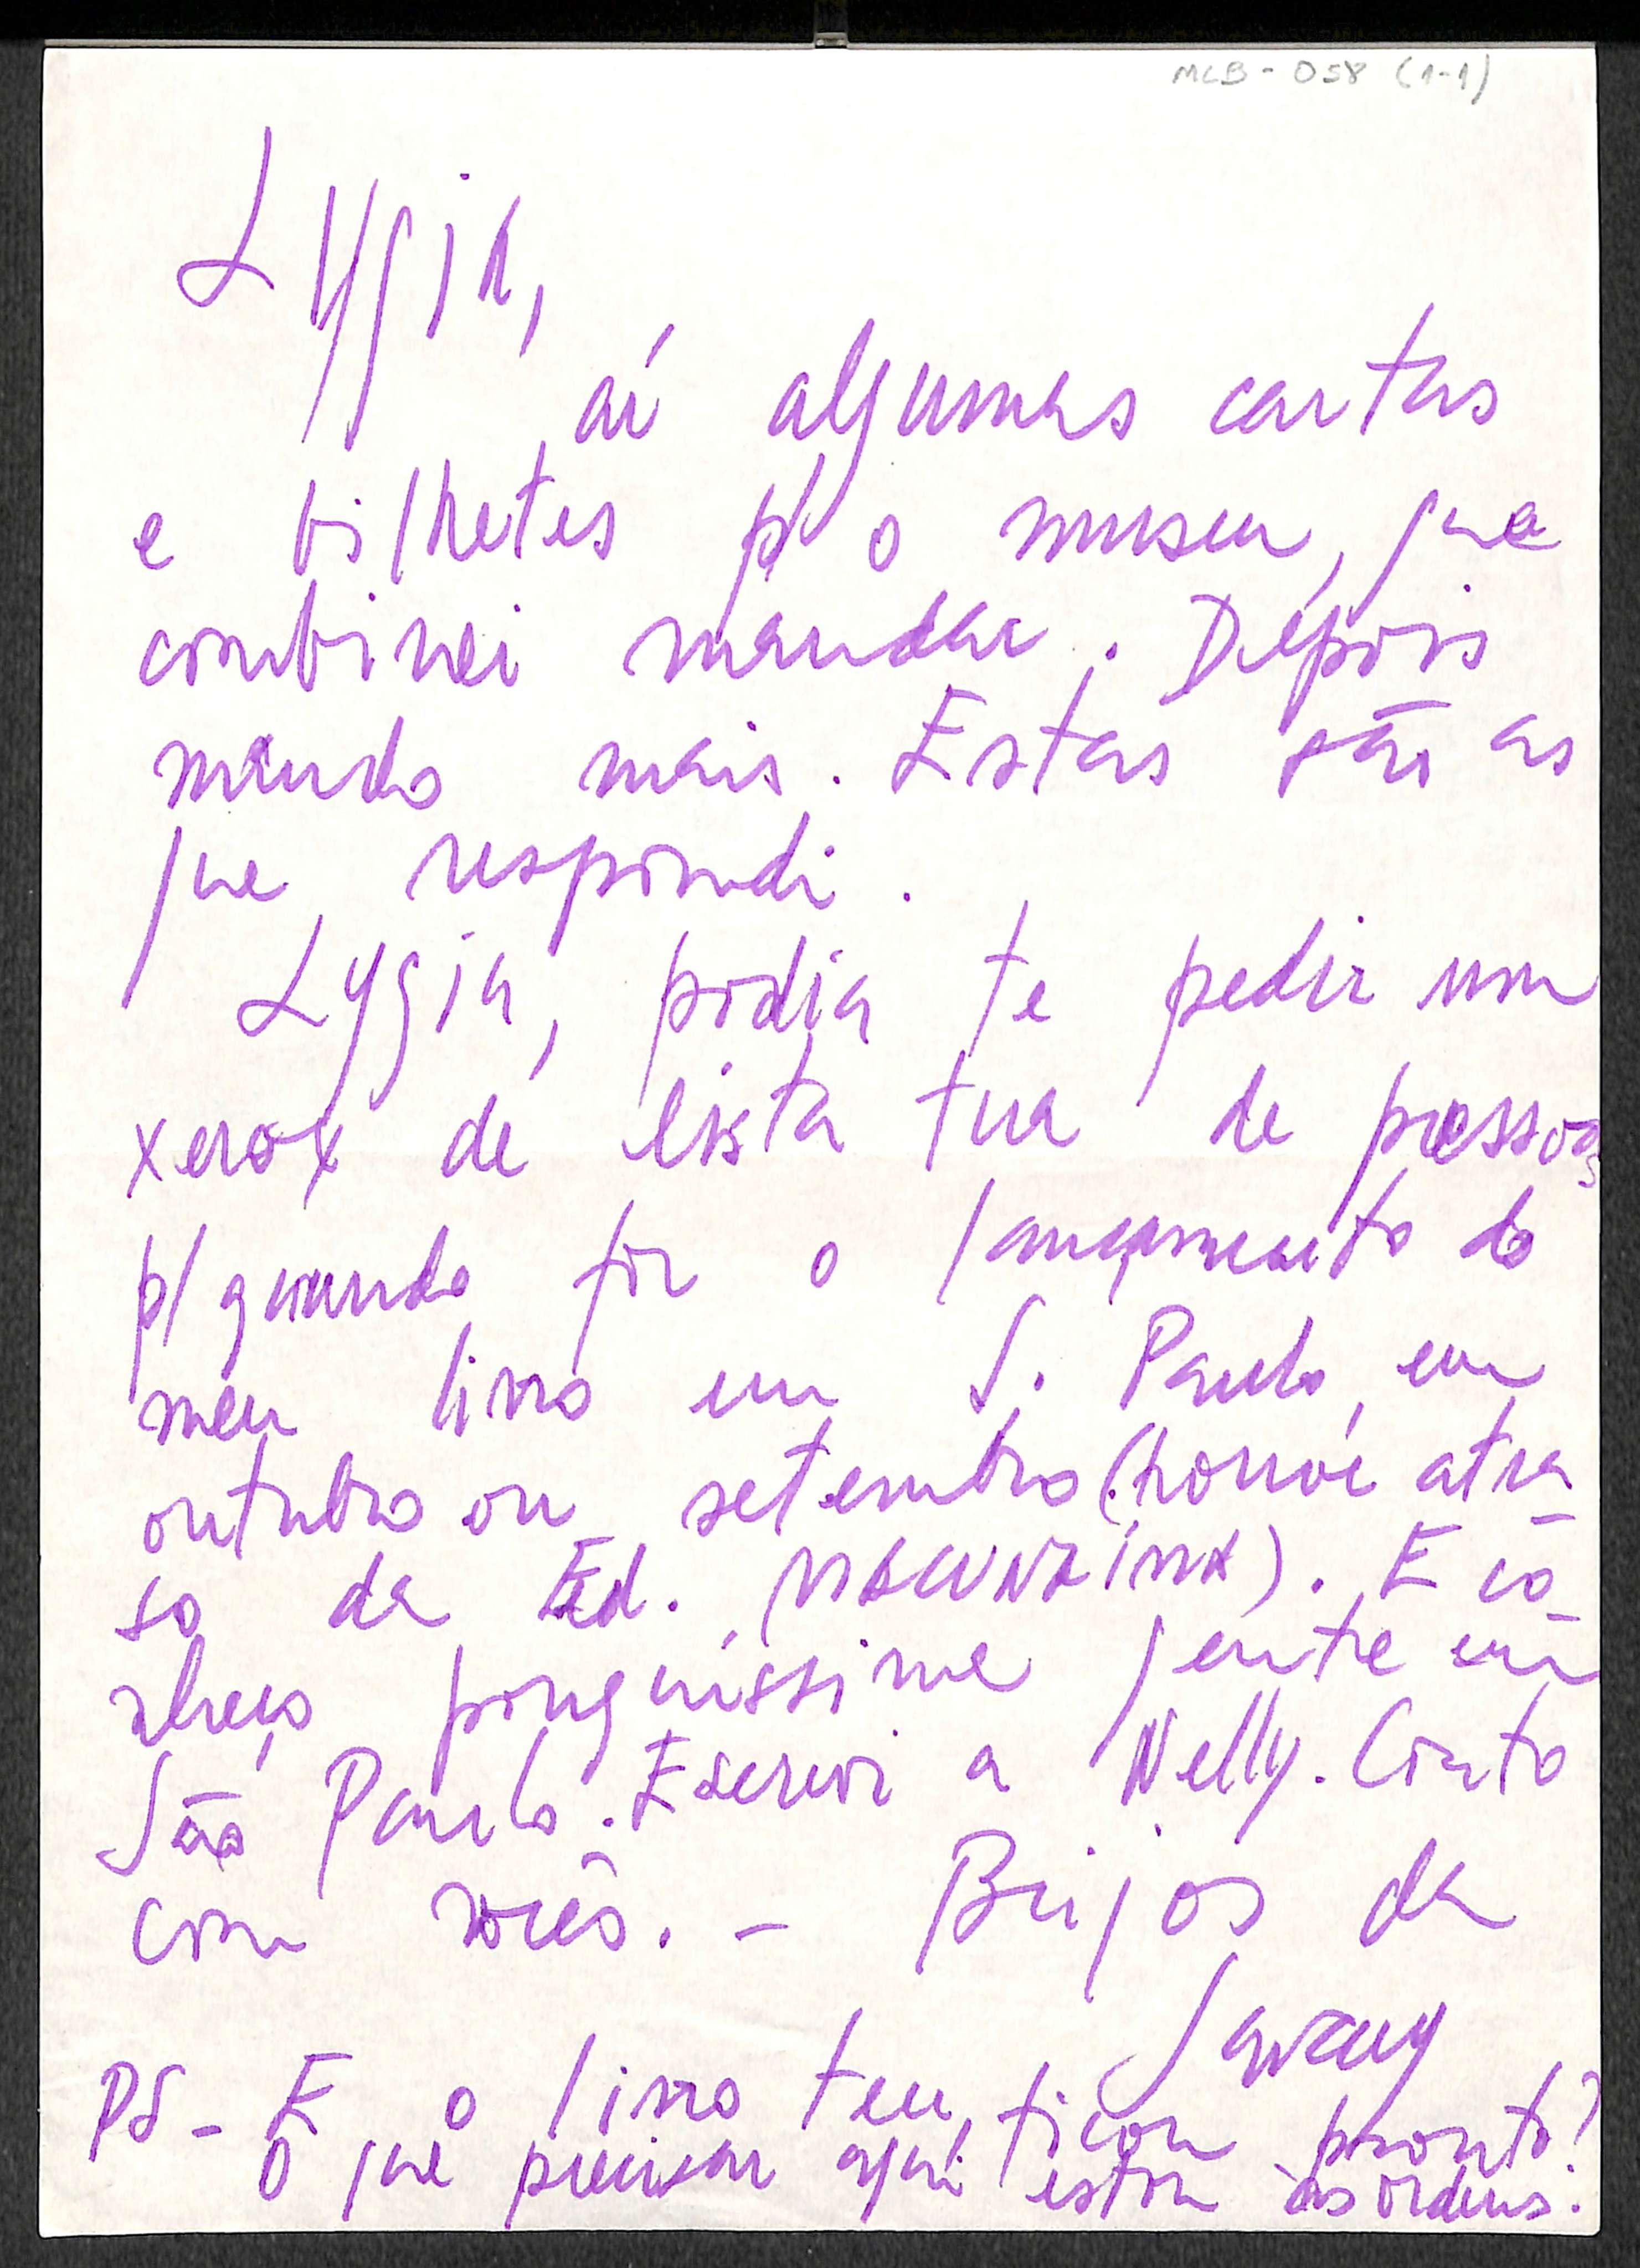 MLB - 058 (1-1)
Lygia,
aí algumas cartas
e bilhetes p/ o museu, que
combinei mandar. Depois
mando mais. Estas são as
que respondi.
Lygia, podia te pedir um
xerox de lista tua de pessoas
p/ quando for o lançamento do
meu livro em S. Paulo, em
outubro ou setembro (houve atra-
so da Ed. MACUNAÍMA). E co-
nheço pouquíssima gente em
São Paulo. Escrevi a Nelly. Conto
com vocês. - Beijos da
Savary
PS - E o livro teu, ficou pronto?
O que precisar aqui estou às ordens.